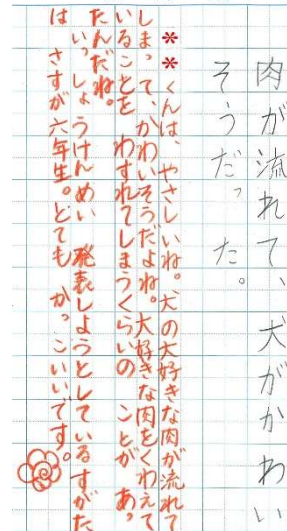 肉が流れて、犬がかわい
そうだった。
**くんは、やさしいね。犬の大好きな肉が流れて
しまって、かわいそうだよね。大好きな肉をくわえて
いることを わすれてしまうくらいの ことが あっ
たんだね。
いっしょうけんめい 発表しようとしているすがた
は さすが六年生。とても かっこいいです。